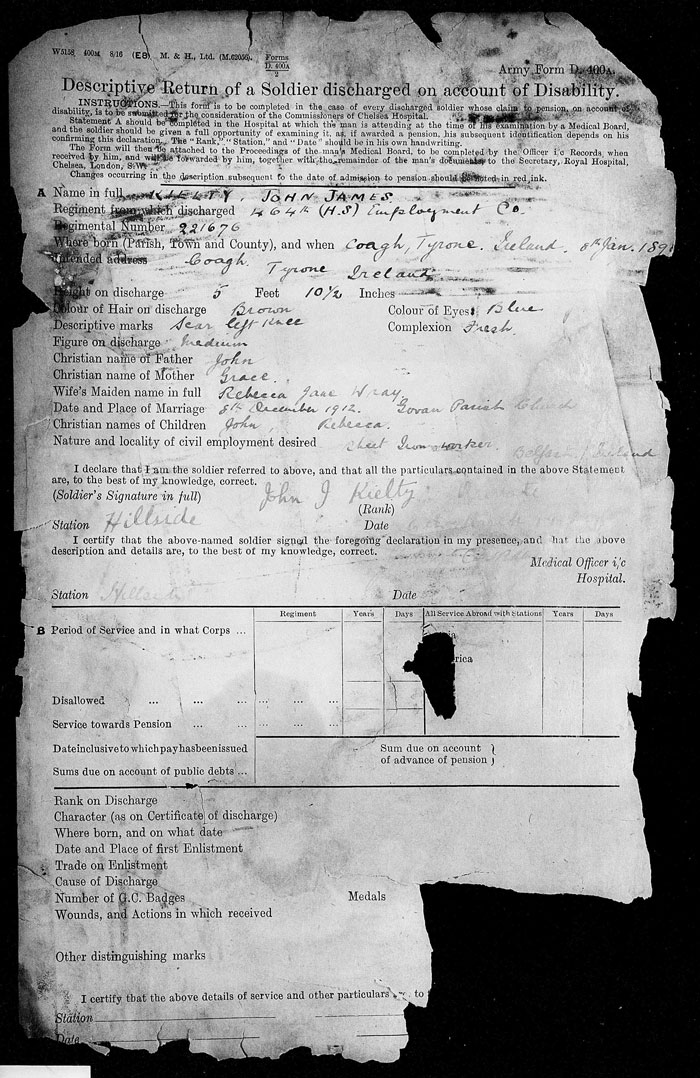 W5158 400M 8/16 (E8) M. & H., Ltd. (M.62056). Forms D. 400A 2
Army Form D. 400A.
Descriptive Return of a Soldier discharged on account of Disability.
INSTRUCTIONS.—This form is to be completed in the case of every discharged soldier whose claim to pension, on account of
disability, is to be submitted for the consideration of the Commissioners of Chelsea Hospital.
Statement A should be completed in the Hospital at which the man is attending at the time of his examination by a Medical Board,
and the soldier should be given a full opportunity of examining it, as, if awarded a pension, his subsequent identification depends on his
confirming this declaration. The "Rank," "Station," and "Date" should be in his own handwriting.
The Form will then be attached to the Proceedings of the man's Medical Board, to be completed by the Officer i/c Records, when
received by him, and will be forwarded by him, together with the remainder of the man's documents to the Secretary, Royal Hospital,
Chelsea, London, S.W.
Changes occurring in the description subsequent to the date of admission to pension should be noted in red ink.
A Name in full KIELTY, JOHN JAMES
Regiment from which discharged 464th (H.S) Employment Co.
Regimental Number 221676
Where born (Parish, Town and County), and when Coagh, Tyrone. Ireland. 8th Jan. 189
Intended address Coagh. Tyrone Ireland
Height on discharge 5 Feet 10½ Inches
Colour of Hair on discharge Brown Colour of Eyes Blue
Descriptive marks Scar left Knee Complexion Fresh.
Figure on discharge Medium
Christian name of Father John
Christian name of Mother Grace.
Wife's Maiden name in full Rebecca Jane Wray.
Date and Place of Marriage 8th December 1912. Govan Parish Church
Christian names of Children John, Rebecca.
Nature and locality of civil employment desired Sheet Iron worker. Belfast, Ireland
I declare that I am the soldier referred to above, and that all the particulars contained in the above Statement
are, to the best of my knowledge, correct.
(Soldier's Signature in full) John J Kielty
(Rank)
Station Hillside Date
I certify that the above-named soldier signed the foregoing declaration in my presence, and that the above
description and details are, to the best of my knowledge, correct.
Medical Officer i/c
Hospital.
Station Hillside Date
Regiment Years Days All Service Abroad with Stations Years Days
B Period of Service and in what Corps ...
ia
rica
Disallowed ... ... ... ... ... ...
Service towards Pension ... ... ... ... ...
Date inclusive to which pay has been issued Sum due on account
of advance of pension
Sums due on account of public debts ...
Rank on Discharge
Character (as on Certificate of discharge)
Where born, and on what date
Date and Place of first Enlistment
Trade on Enlistment
Cause of Discharge
Number of G.C. Badges Medals
Wounds, and Actions in which received
Other distinguishing marks
I certify that the above details of service and other particulars are to
Station
Date